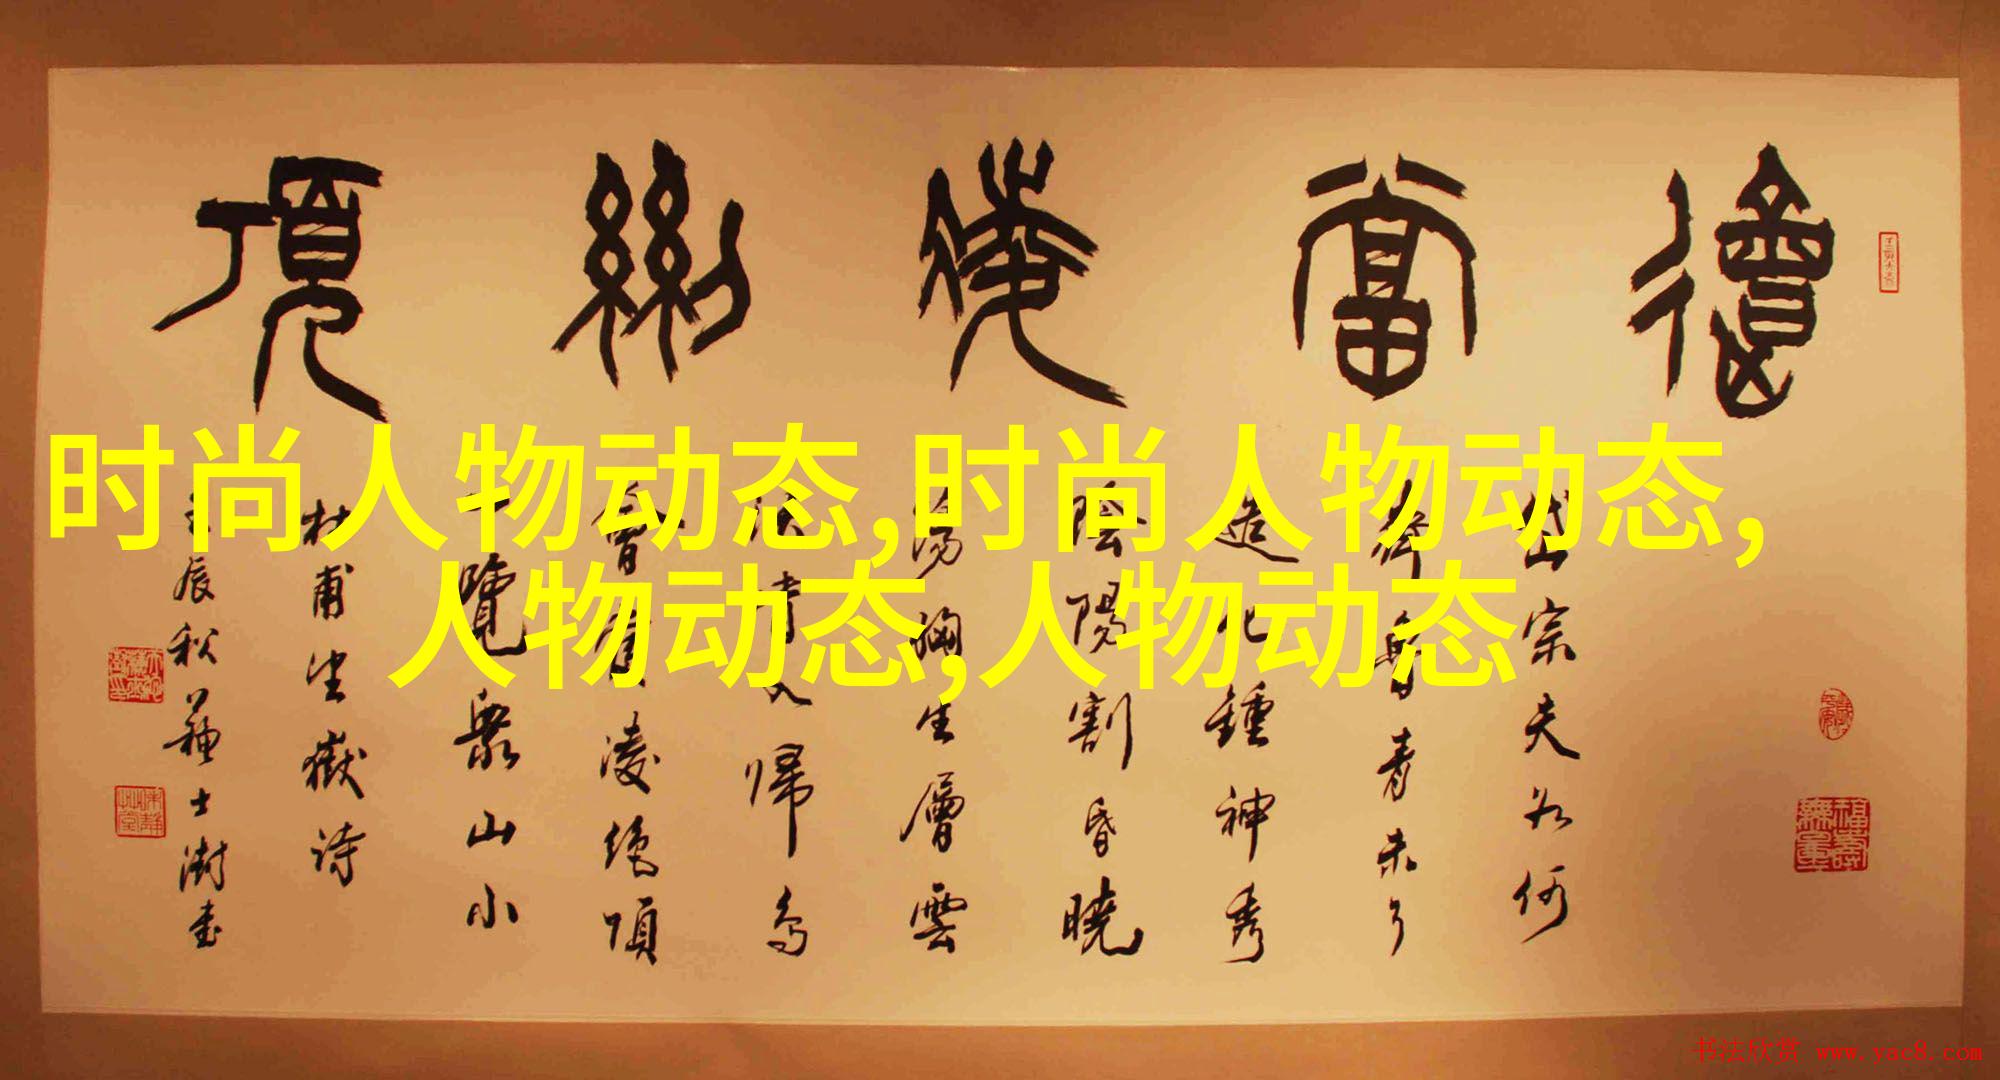 會當凌絕頂
岱宗夫如何
齊魯青未了
造化鍾神秀
陰陽割昏曉
蕩胸生層雲
決眥入歸鳥
會當凌絕頂
一覽眾山小
杜甫望嶽詩
壬辰秋蘇士澍書
福壽無量
时尚人物动态,时尚人物动态,
人物动态,人物动态
书法欣赏 www.yac8.com